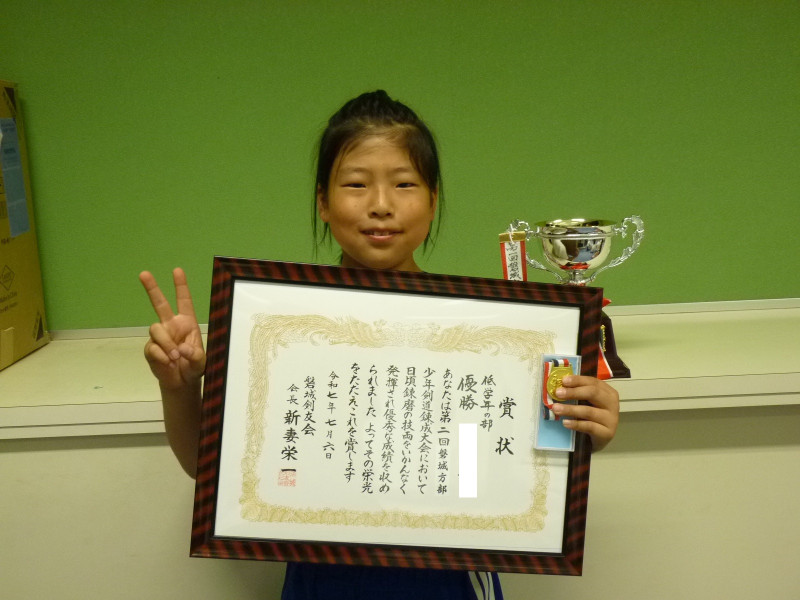 賞状
低学年の部
優勝
あなたは第二回磐城方部
少年剣道錬成大会において
日頃錬磨の技両をいかんなく
発揮され優秀な成績を収め
られました よってその栄光
をたたえこれを賞します
令和七年七月六日
磐城剣友会
会長 新妻栄